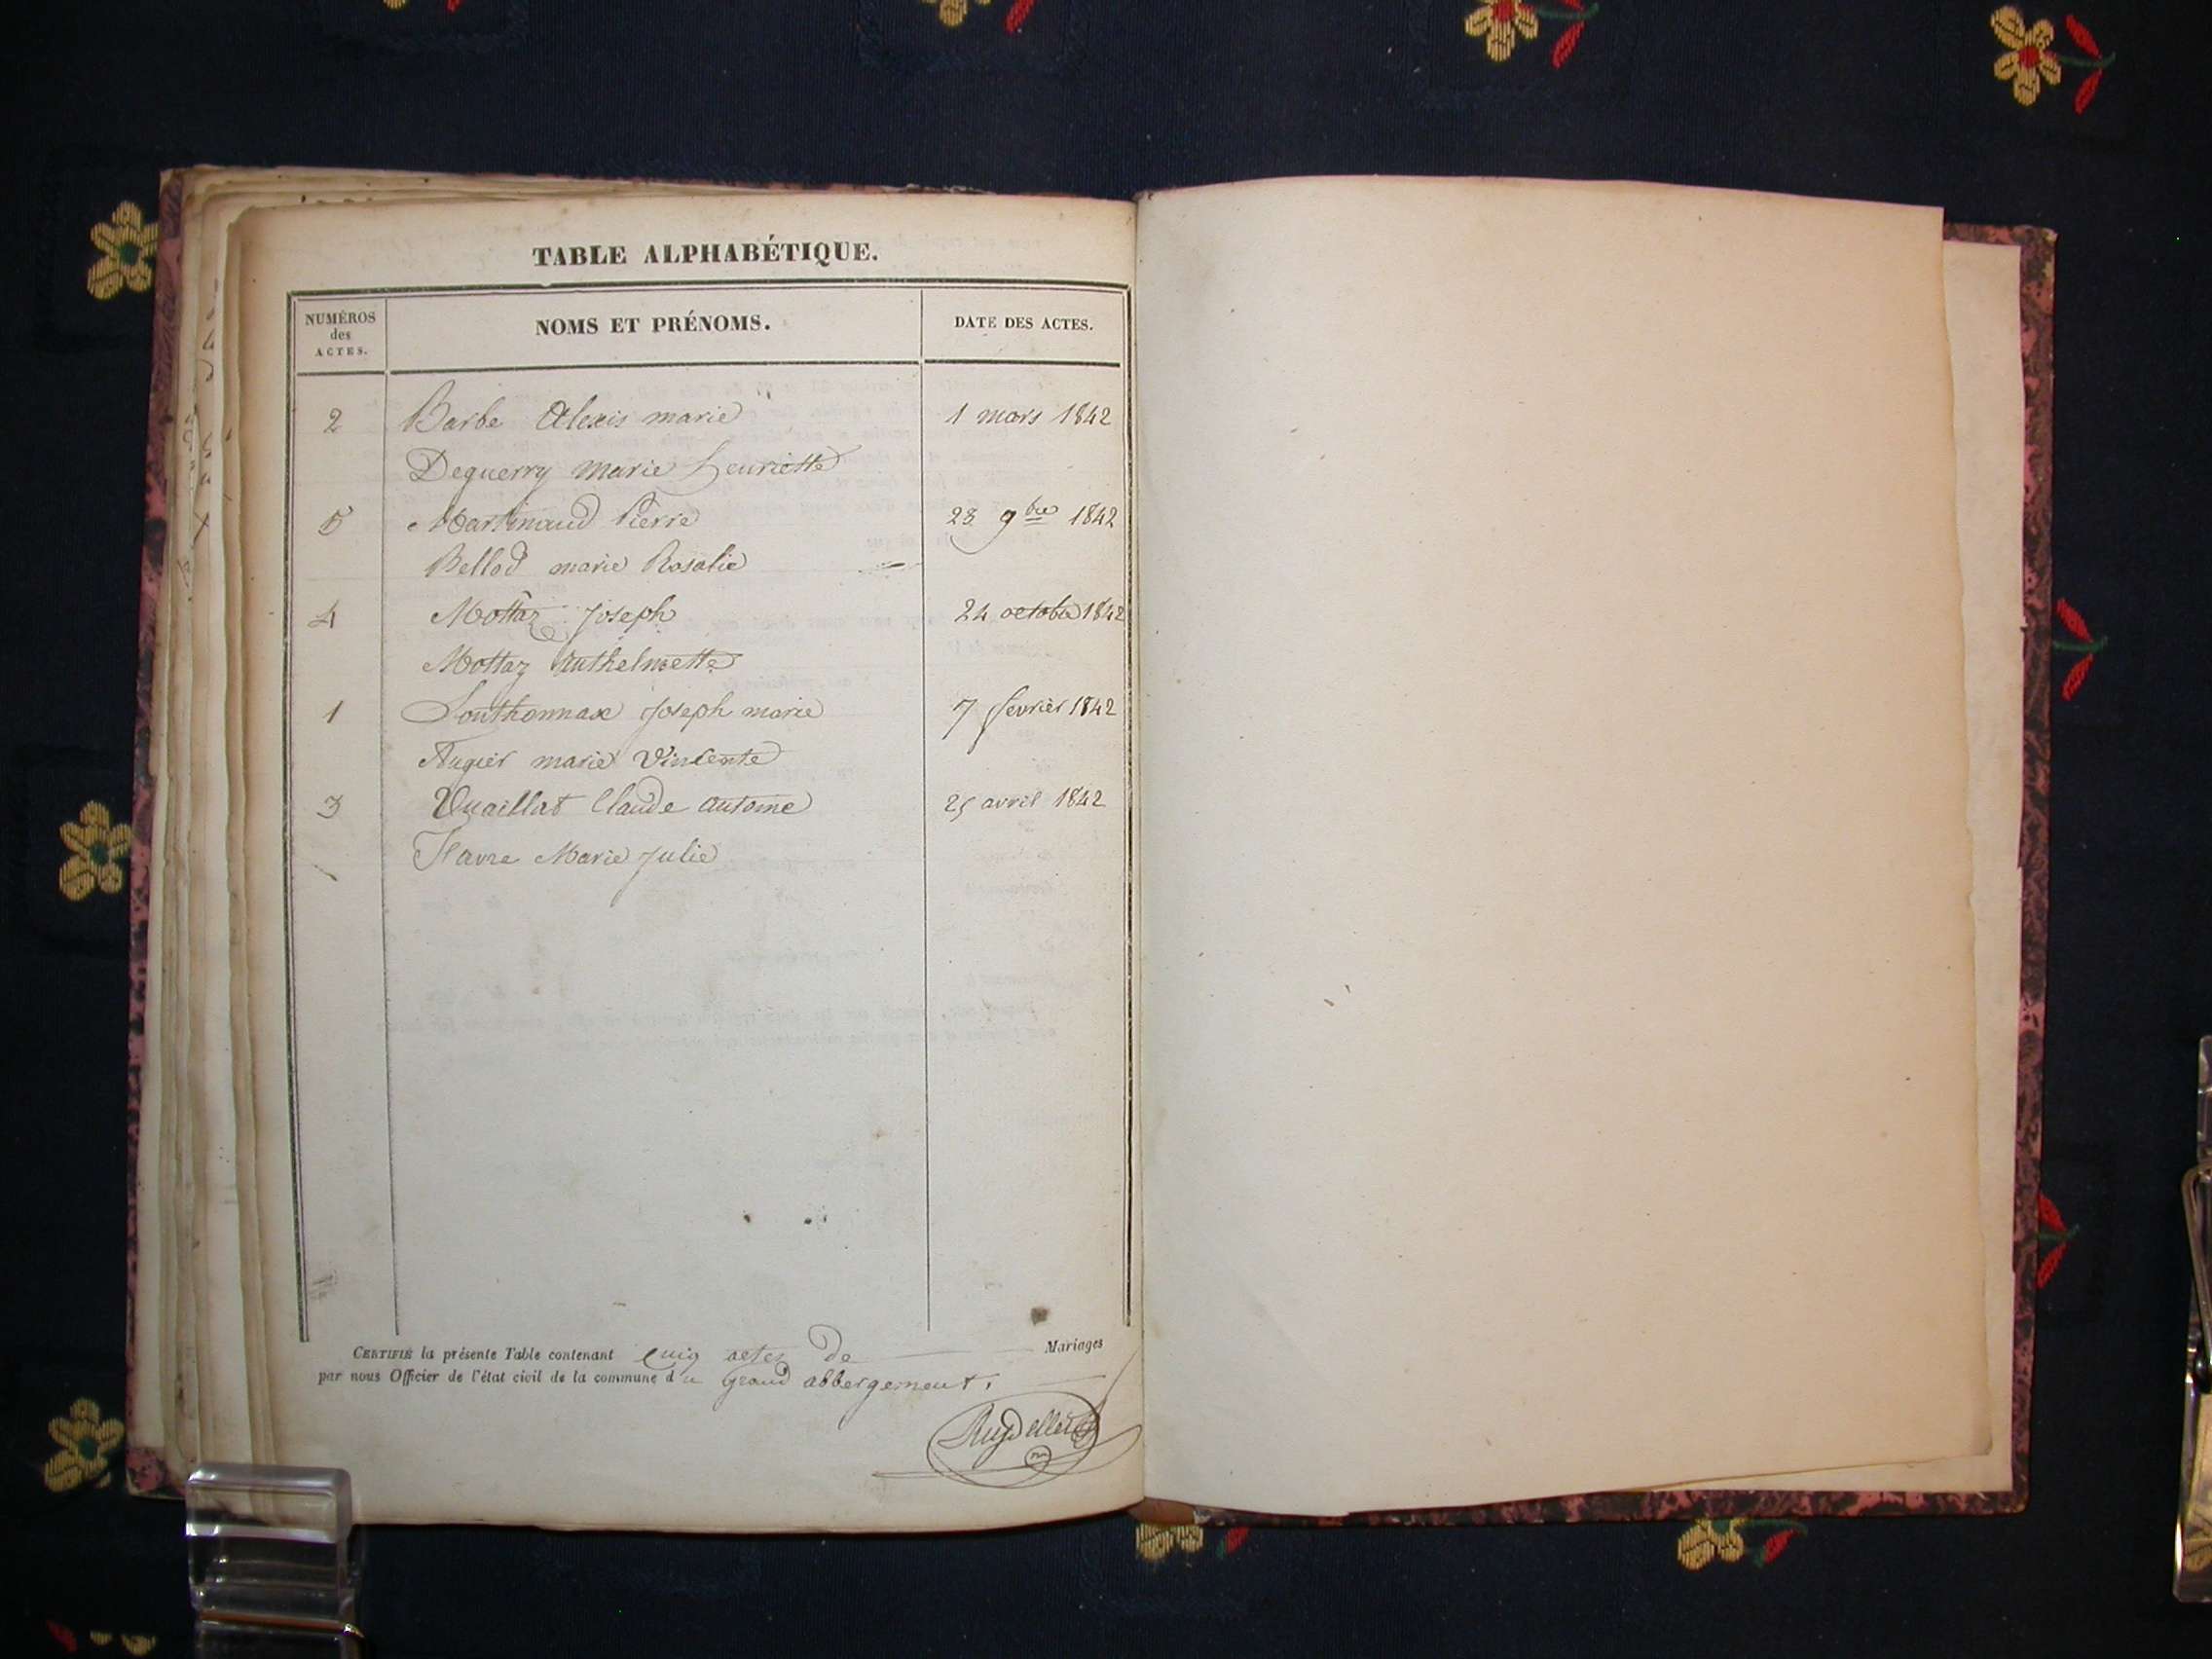 TABLE ALPHABÉTIQUE.
NUMÉROS des ACTES.
NOMS ET PRÉNOMS.
DATE DES ACTES.
2 Barbe Alexis marie 1 mars 1842
Deguerry marie henriette
5 Martinaud Pierre 28 9bre 1842
Bellod marie Rosalie
4 Mottaz Joseph 24 octobre 1842
Mottaz Anthelmette
1 Southonnax Joseph marie 7 fevrier 1842
Augier marie Vincente
3 Vuaillat Claude antoine 25 avril 1842
Marie Julie
CERTIFIÉ la présente Table contenant Cinq actes de Mariages
par nous Officier de l'état civil de la commune du grand abbergement.